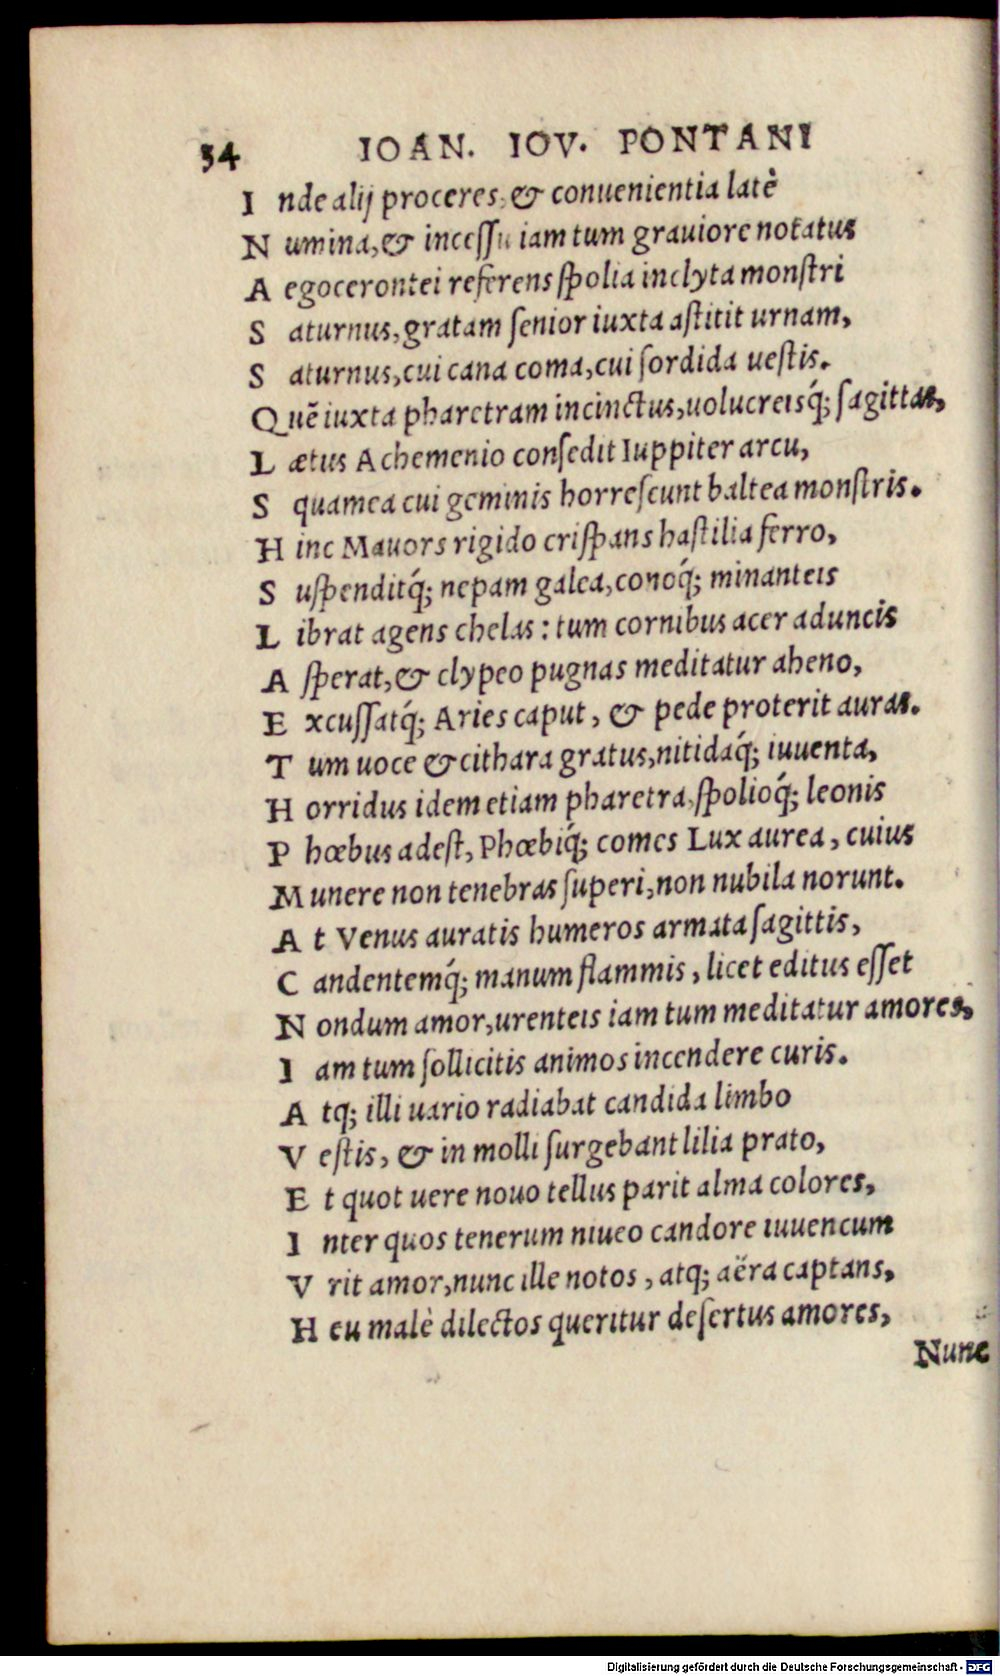 34 IOAN. IOV. PONTANI
I nde alij proceres, & conuenientia latè
N umina, & incessu iam tum grauiore notatus
A egocerontei referens spolia inclyta monstri
S aturnus, gratam senior iuxta astitit urnam,
S aturnus, cui cana coma, cui sordida uestis.
Q uē iuxta pharetram incinctus, uolucreisq́; sagittas,
L ætus Achemenio consedit Iuppiter arcu,
S quamea cui geminis horrescunt baltea monstris.
H inc Mauors rigido crispans hastilia ferro,
S uspenditq́; nepam galea, conoq́; minanteis
L ibrat agens chelas: tum cornibus acer aduncis
A sperat, & clypeo pugnas meditatur aheno,
E xcussatq́; Aries caput, & pede proterit auras.
T um uoce & cithara gratus, nitidaq́; iuuenta,
H orridus idem etiam pharetra, spolioq́; leonis
P hœbus adest, Phœbiq́; comes Lux aurea, cuius
M unere non tenebras superi, non nubila norunt.
A t Venus auratis humeros armata sagittis,
C andentemq́; manum flammis, licet editus esset
N ondum amor, urenteis iam tum meditatur amores,
I am tum sollicitis animos incendere curis.
A tq; illi uario radiabat candida limbo
V estis, & in molli surgebant lilia prato,
E t quot uere nouo tellus parit alma colores,
I nter quos tenerum niueo candore iuuencum
V rit amor, nunc ille notos, atq; aëra captans,
H eu malè dilectos queritur desertus amores,
Nunc
Digitalisierung gefördert durch die Deutsche Forschungsgemeinschaft - DFG